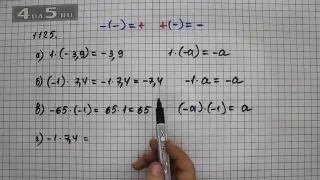 4DA5.RU
-(-) = +   +(-) = -
1125.
а) 1·(-3,9) = -3,9   1·(-a) = -a
б) (-1)·7,4 = -1·7,4 = -7,4   -1·a = -a
в) -65·(-1) = 65·1 = 65   (-a)·(-1) = a
г) -1·7,4 =